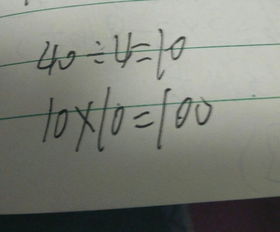 40÷4=10
10×10=100